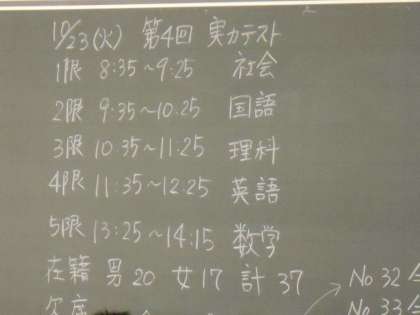 10/23(火) 第4回 実力テスト
1限 8:35~9:25 社会
2限 9:35~10:25 国語
3限 10:35~11:25 理科
4限 11:35~12:25 英語
5限 13:25~14:15 数学
在籍 男20 女17 計37
No 32
No 33